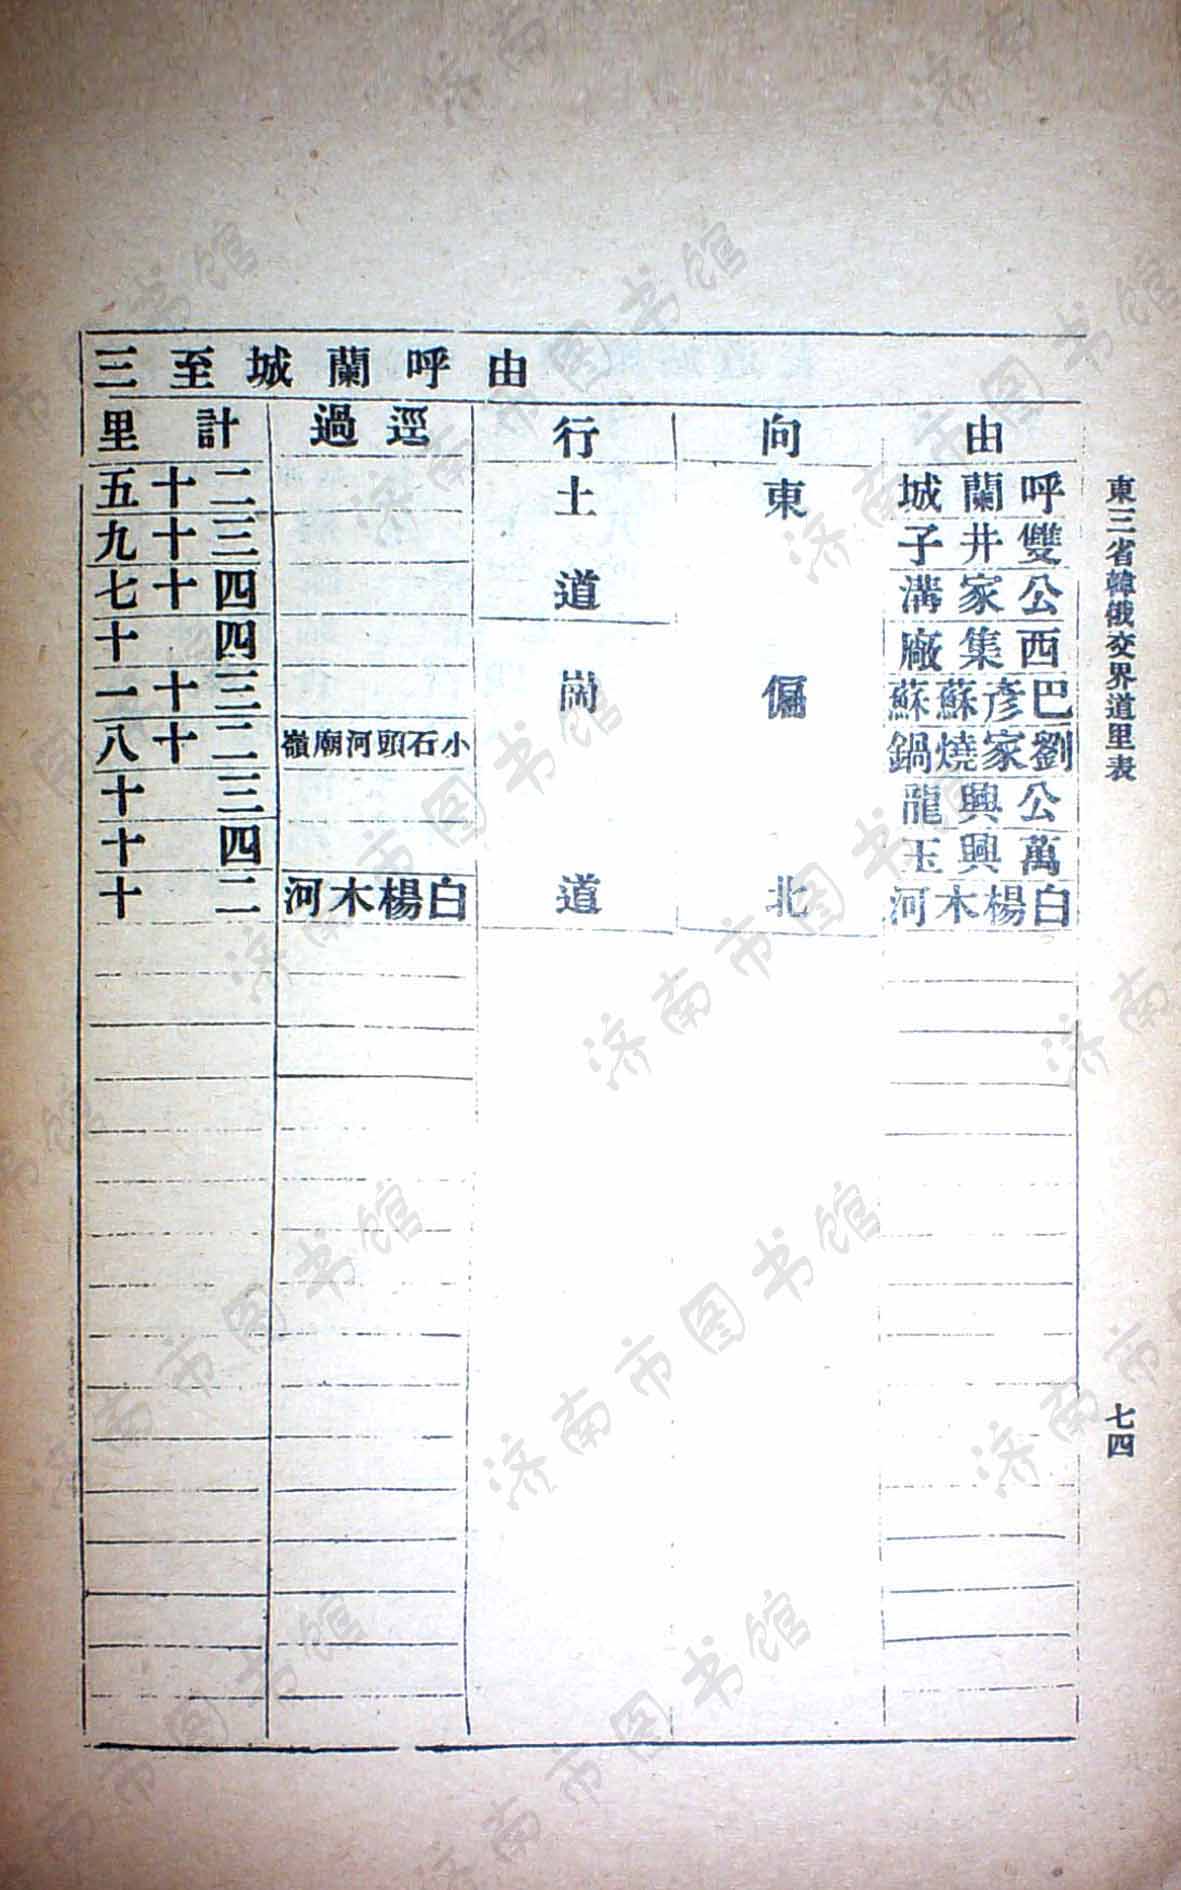 東三省韓俄交界道里表
七四
由呼蘭城至三
由
呼蘭城
雙井子
公家溝
西集廠
巴彥蘇蘇
劉家燒鍋
公興龍
萬興玉
白楊木河
向
東偏北
行
土道
崗道
逕過
小石頭河廟嶺
白楊木河
計里
二十五
三十九
四十七
四十
三十一
二十八
三十
四十
二十
济南市图书馆